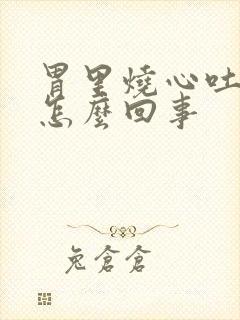 胃里燒心吐
怎麼回事
兔倉倉